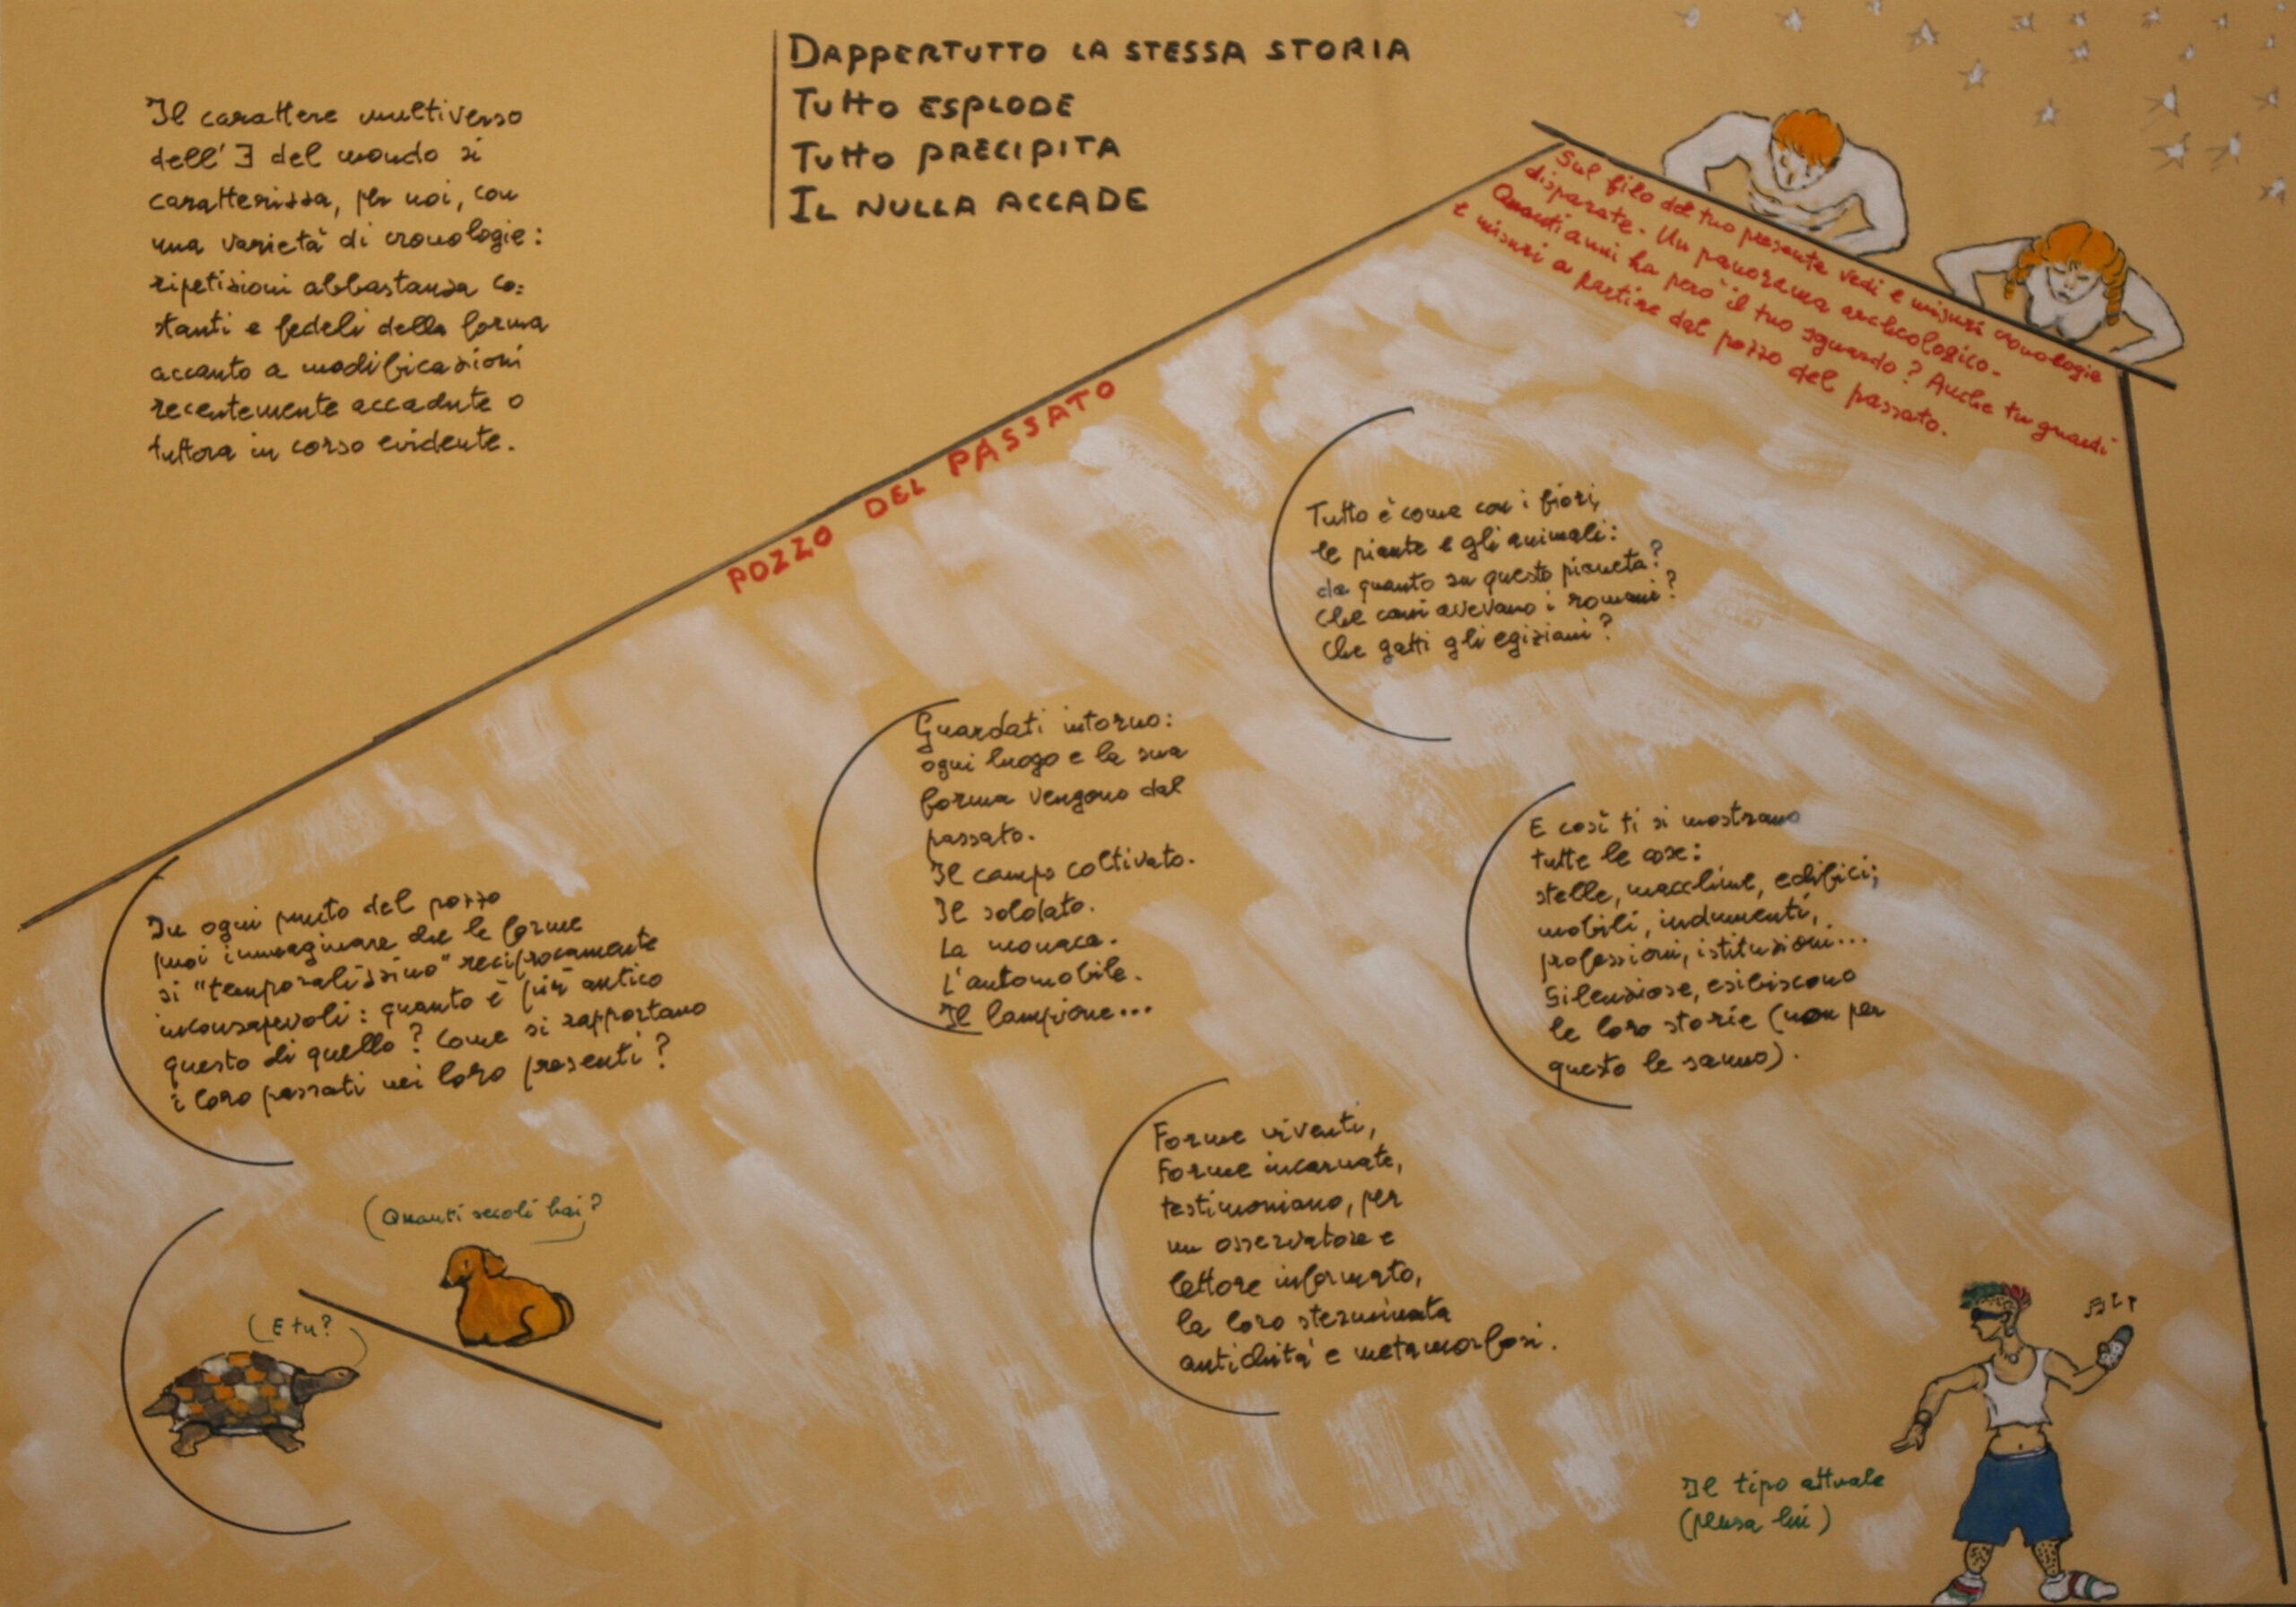 Il carattere multiverso
dell'∃ del mondo si
caratterizza, per noi, con
una varietà di cronologie:
ripetizioni abbastanza co=
stanti e fedeli della forma
accanto a modificazioni
recentemente accadute o
tuttora in corso evidente.
DAPPERTUTTO LA STESSA STORIA
TUTTO ESPLODE
TUTTO PRECIPITA
IL NULLA ACCADE
Sul filo del tuo presente vedi e misuri cronologie
disparate. Un panorama archeologico.
Quanti anni ha però il tuo sguardo? Anche tu guardi
e misuri a partire dal pozzo del passato.
POZZO DEL PASSATO
Tutto è come con i fiori,
le piante e gli animali:
da quanto su questo pianeta?
Che cani avevano i romani?
Che gatti gli egiziani?
Guardati intorno:
ogni luogo e la sua
forma vengono dal
passato.
Il campo coltivato.
Il soldato.
La monaca.
L'automobile.
Il lampione...
E così ti si mostrano
tutte le cose:
stelle, macchine, edifici;
mobili, indumenti,
professioni, istituzioni...
Silenziose, esibiscono
le loro storie (non per
questo le sanno).
In ogni punto del pozzo
puoi immaginare che le forme
si "temporalizzino" reciprocamente
inconsapevoli: quanto è più antico
questo di quello? Come si rapportano
i loro passati nei loro presenti?
Forme viventi,
Forme incarnate,
testimoniano, per
un osservatore e
lettore informato,
la loro sterminata
antichità e metamorfosi.
(Quanti secoli hai?
(E tu?
Il tipo attuale
(pensa lui)